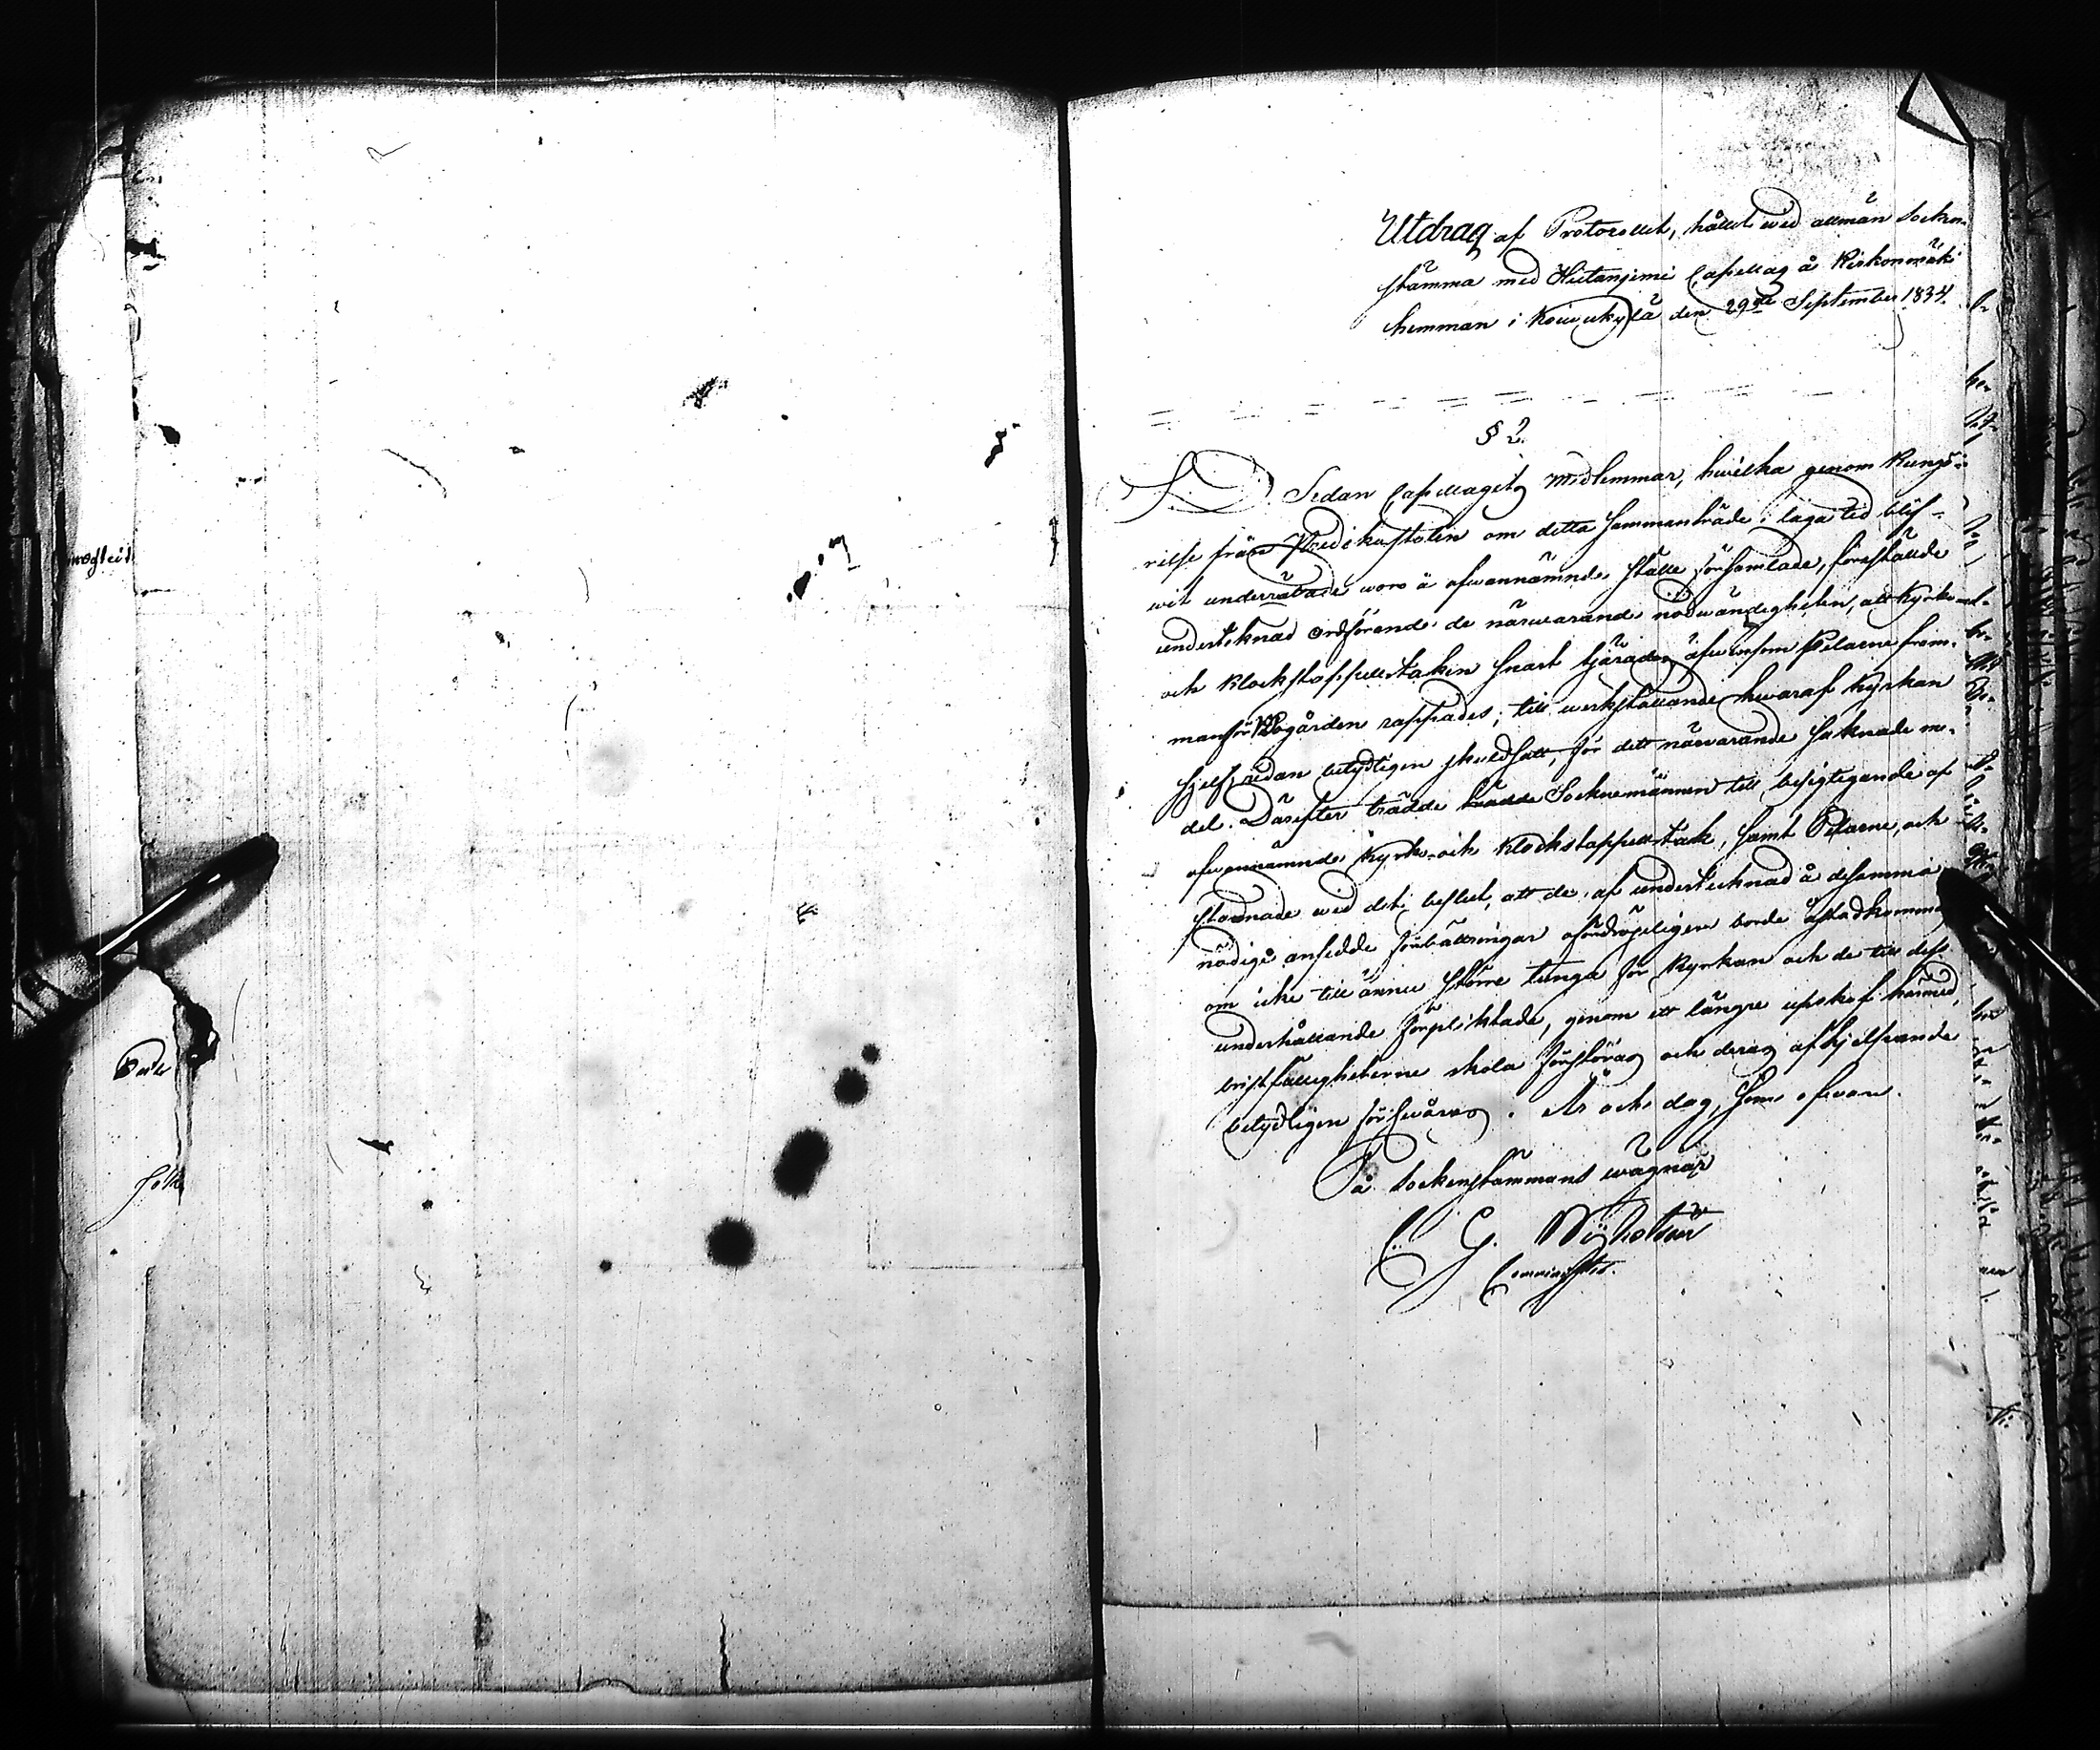 Utdrag af Protocollet, hållet wid allmän Sockne-
stämma med Hietanjemi Capellag å Riskonmäki
hemman i Koiwukylä den 29de September 1834.
§ 2.
Sedan Capellagets Medlemmar, hwilka genom Kungö-
relse från Predikostolen om detta Sammanträde i laga tid blif-
wit underrättade woro å ofwannämnde ställe församlade, förestälde
underteknad Ordförande de närwarande nödwändigheten, att Kyrko-
och Klockstappelstaken snart tjäradess äfwensom Pelarne fram-
manför Bogården rappades; till werkställande hwaraf Kyrkan
sjelf, redan betydligen skuldsatt, för det närwarande saknade me-
del. Därefter trädde Socknemännen till besigtigande af
ofwannämnde Kyrk- och Klockstappelstak, samt Pelarne, och
stannade wid det beslut, att de af undertecknad å desamma
nödige ansedde förbättringar ofördröjeligen borde åstadkommas
om icke till ännu större tunga för Kyrkan och de till dess
underhållande förpliktade, genom ett längre upskof härmed,
bristfälligheterne skola förstöras och deras afhjelpande
betydligen förswåras. År och dag, som ofwan.
På Sockenstämmans wägnar
C. G.
Comminister.